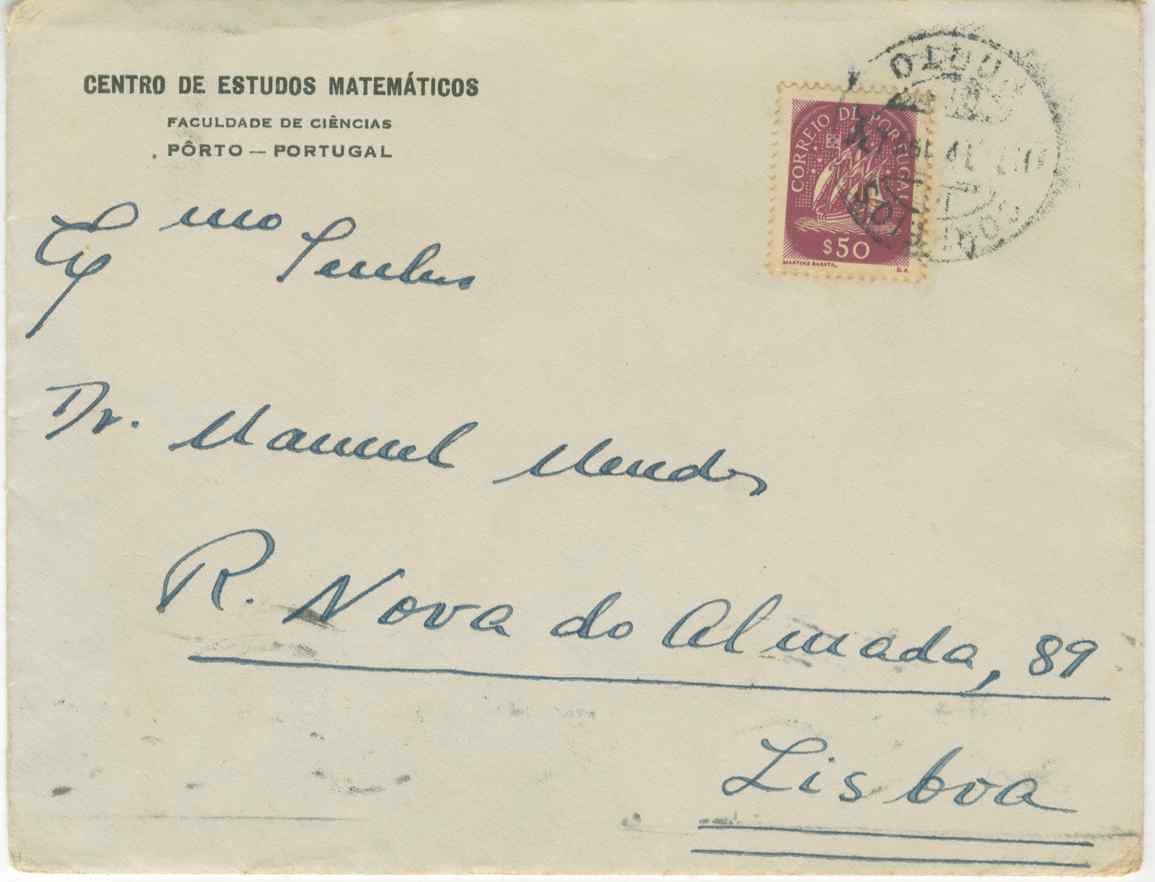 CENTRO DE ESTUDOS MATEMÁTICOS
FACULDADE DE CIÊNCIAS
PÔRTO — PORTUGAL
CORREIO DE PORTUGAL
$50
MARTINS BARATA.
Exmo Senhor
Dr. Manuel Mendes
R. Nova do Almada, 89
Lisboa